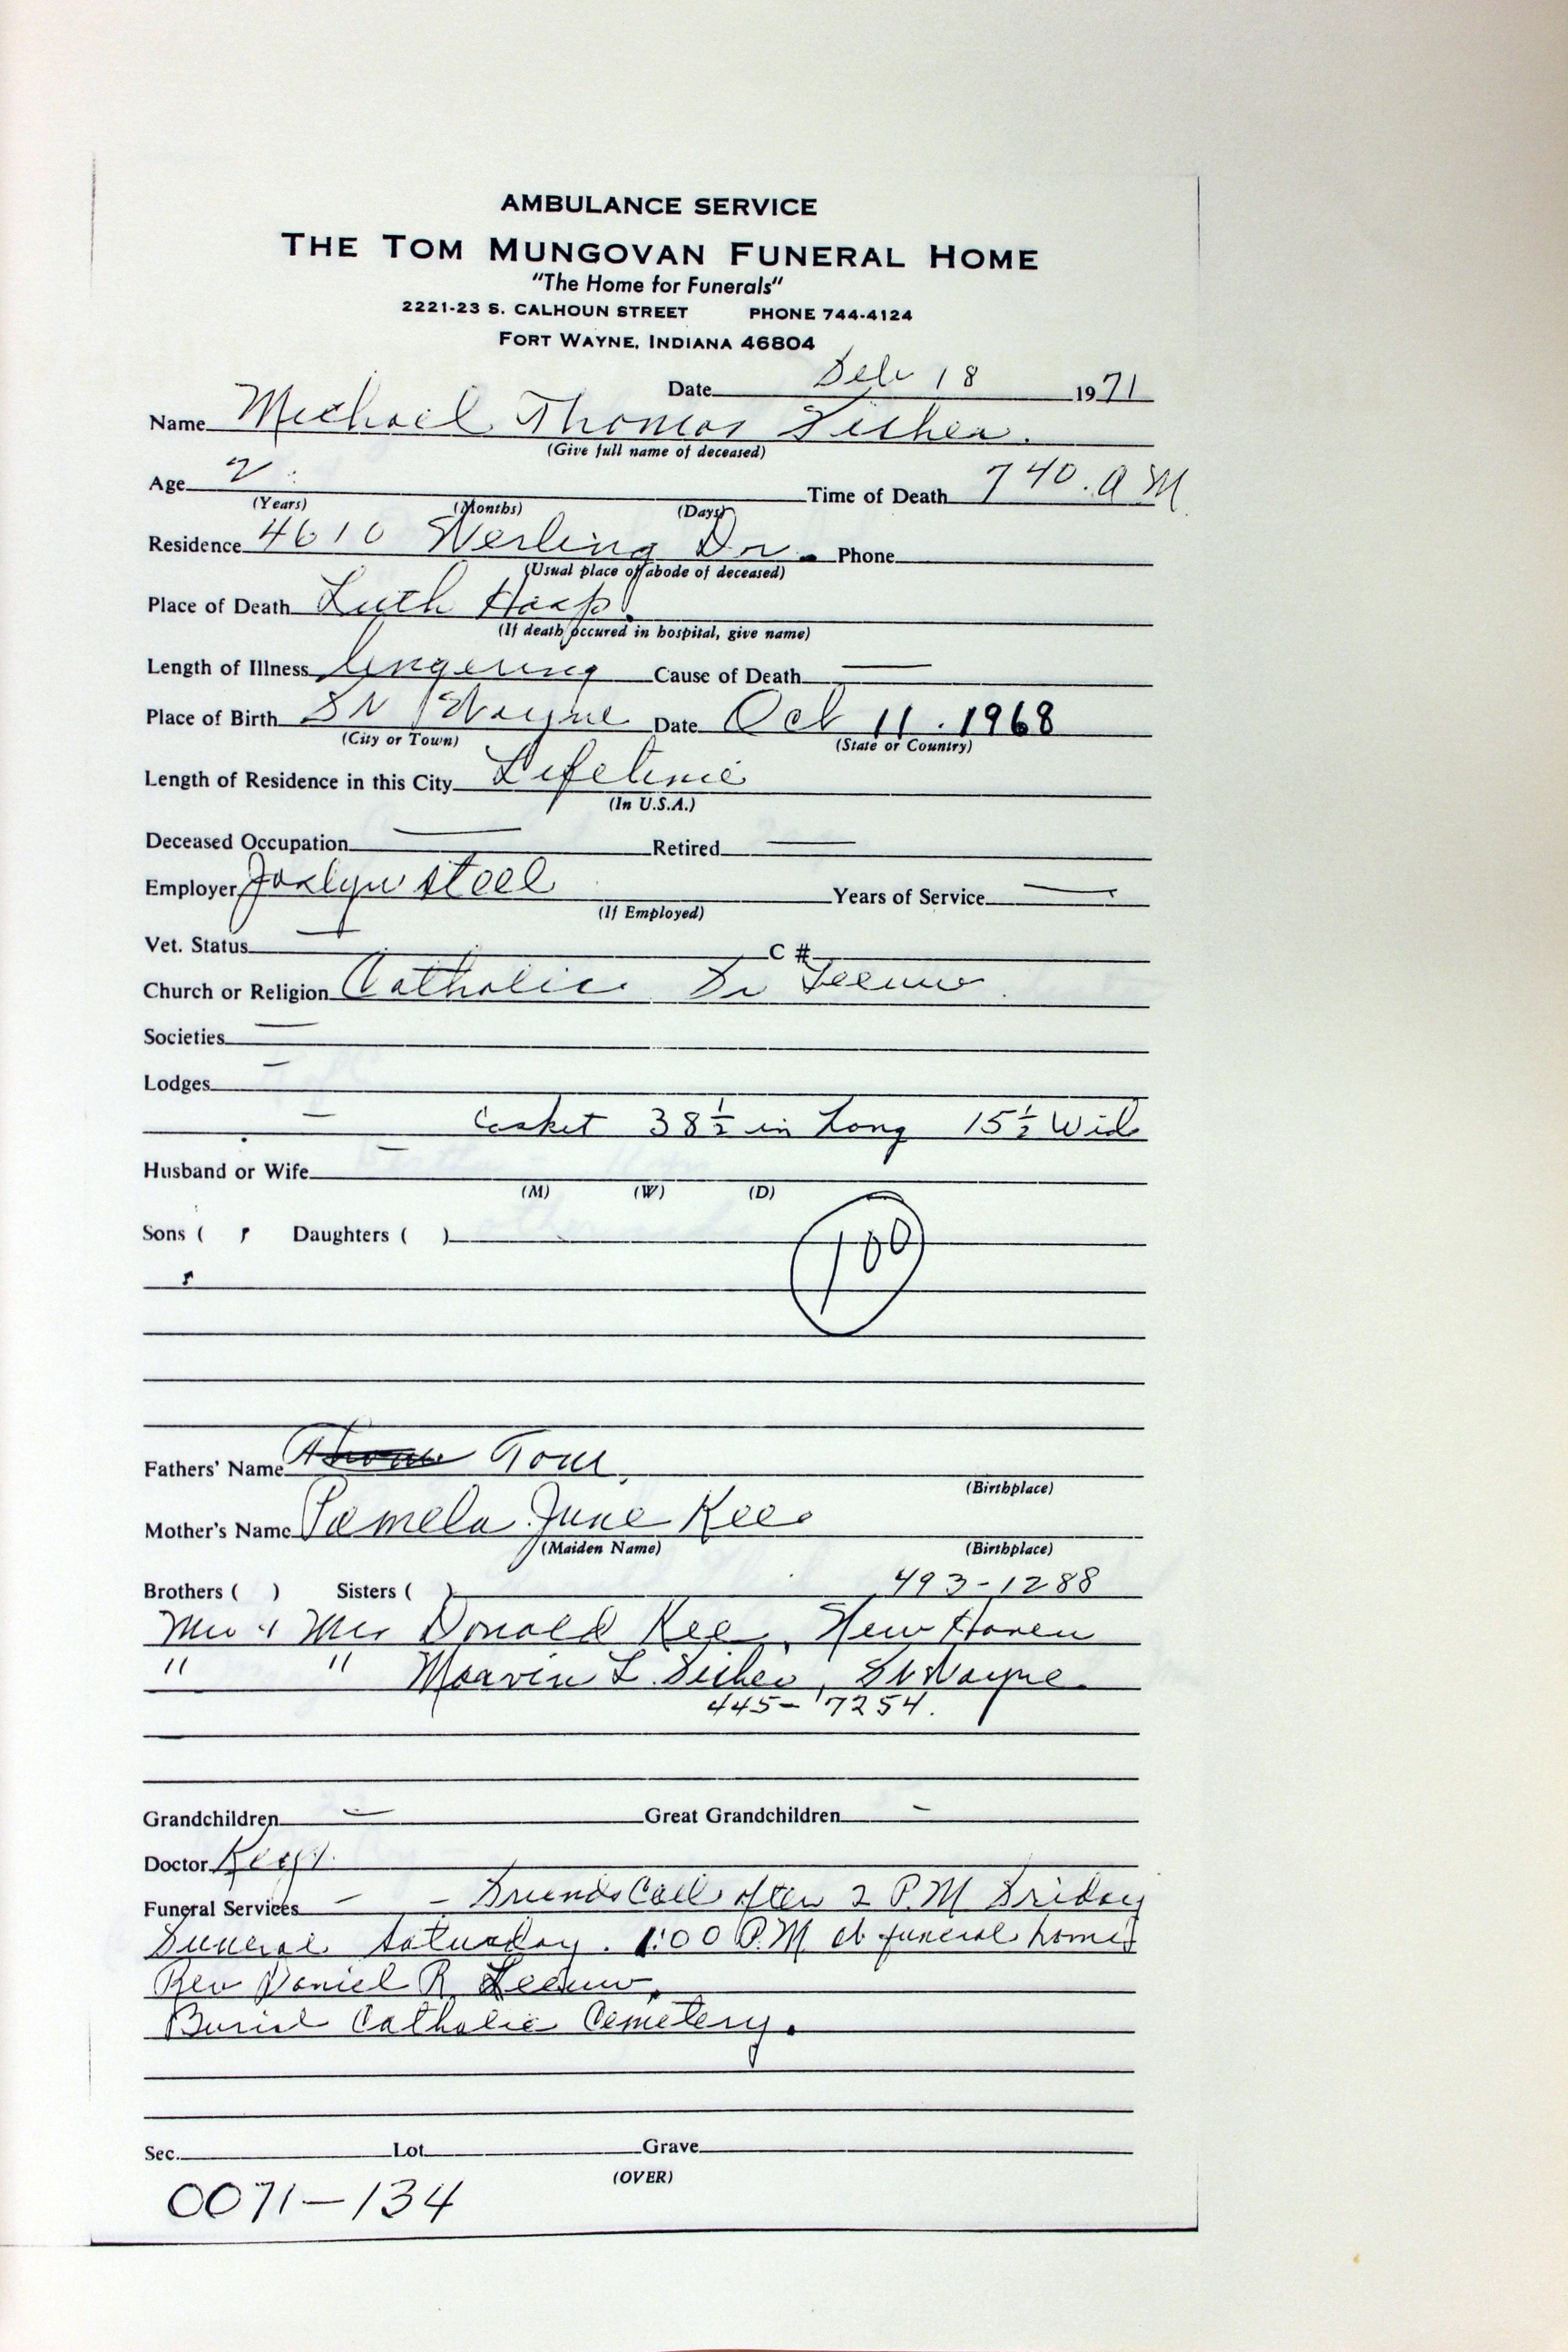 AMBULANCE SERVICE
THE TOM MUNGOVAN FUNERAL HOME
"The Home for Funerals"
2221-23 S. CALHOUN STREET PHONE 744-4124
FORT WAYNE, INDIANA 46804
Date Feb 18 1971
Name Michael Thomas Fisher.
(Give full name of deceased)
Age 2 Time of Death 7 40. A M
(Years) (Months) (Days)
Residence 4610 Werling Dr. Phone
(Usual place of abode of deceased)
Place of Death Luth Hosp.
(If death occured in hospital, give name)
Length of Illness lingering Cause of Death —
Place of Birth Ft Wayne Date Oct 11. 1968
(City or Town) (State or Country)
Length of Residence in this City Lifetime
(In U.S.A.)
Deceased Occupation — Retired —
Employer Joslyn Steel Years of Service —
(If Employed)
Vet. Status — C #
Church or Religion Catholic Fr
Societies —
Lodges —
— Casket 38 1/2 in Long 15 1/2 Wide
Husband or Wife —
(M) (W) (D)
Sons ( ) Daughters ( )
100
Fathers' Name Tom
(Birthplace)
Mother's Name Pamela June Kee
(Maiden Name) (Birthplace)
Brothers ( ) Sisters ( ) 493-1288
Mr & Mrs Donald Kee, New Haven
" " Marvin L. Fisher, Ft Wayne
445-7254.
Grandchildren — Great Grandchildren —
Doctor
Funeral Services - - Friends Call after 2 P.M Friday
Funeral Saturday. 1:00 P.M at funeral home
Rev Daniel R
Burial Catholic Cemetery.
Sec. Lot Grave
(OVER)
0071-134